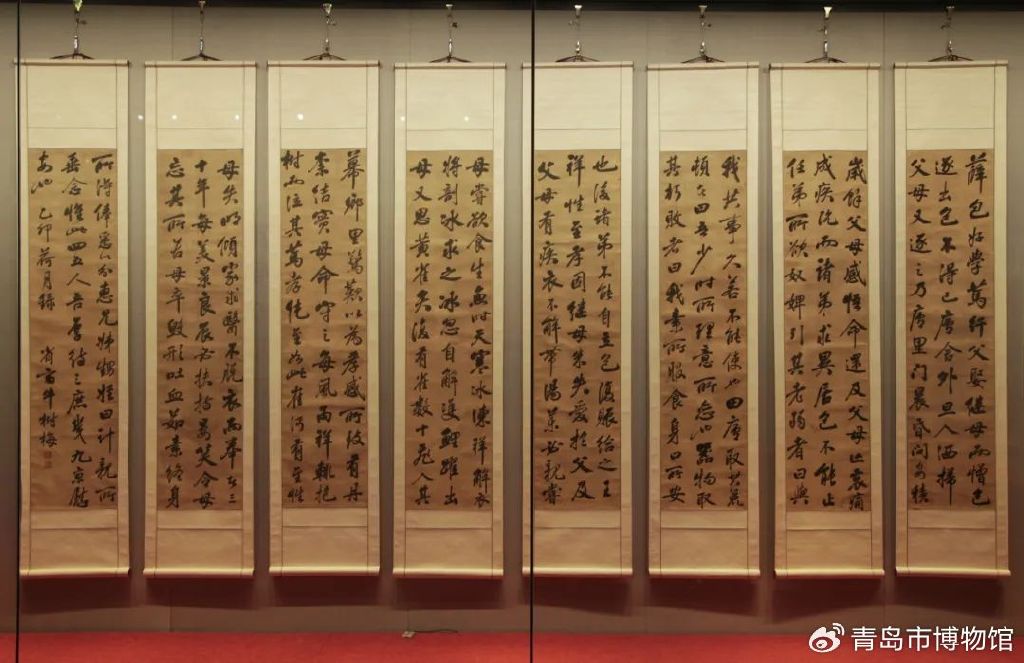 薛包好学篤行父娶继母而憎包
遂出包不得已廬舍外旦入洒掃
父母又逐之乃廬里门晨昏问安積
歲餘父母感悟命還及父母亡哀痛
成疾訖而諸弟求異居包不能止
任弟所欲奴婢引其老弱者曰與
我共事久若不能使也田廬取其荒
頓者曰吾少时所理意所恋也器物取
其朽敗者曰我素所服食身口所安
也後諸弟不能自立包復賑给之王
祥性至孝因继母朱失愛於父及
父母有疾衣不解带湯药必親嘗
母嘗欲食生魚时天寒冰凍祥解衣
将剖冰求之冰忽自解雙鯉躍出
母又思黄雀炙復有雀数十飛入其
幕鄉里驚歎以为孝感所致有丹
柰结實母命守之每風雨祥輒抱
树而泣其篤孝純至如此崔沔有至性
母失明傾家求醫不脱衣而奉者三
十年每美景良辰必扶持为笑令母
忘其所苦母卒毁形吐血茹素终身
所得俸悉以分惠兄姊甥姪曰计親所
垂念惟此四五人吾厚待之庶幾九京慰
安也 己卯荷月錄
省齋牛树梅
青岛市博物馆